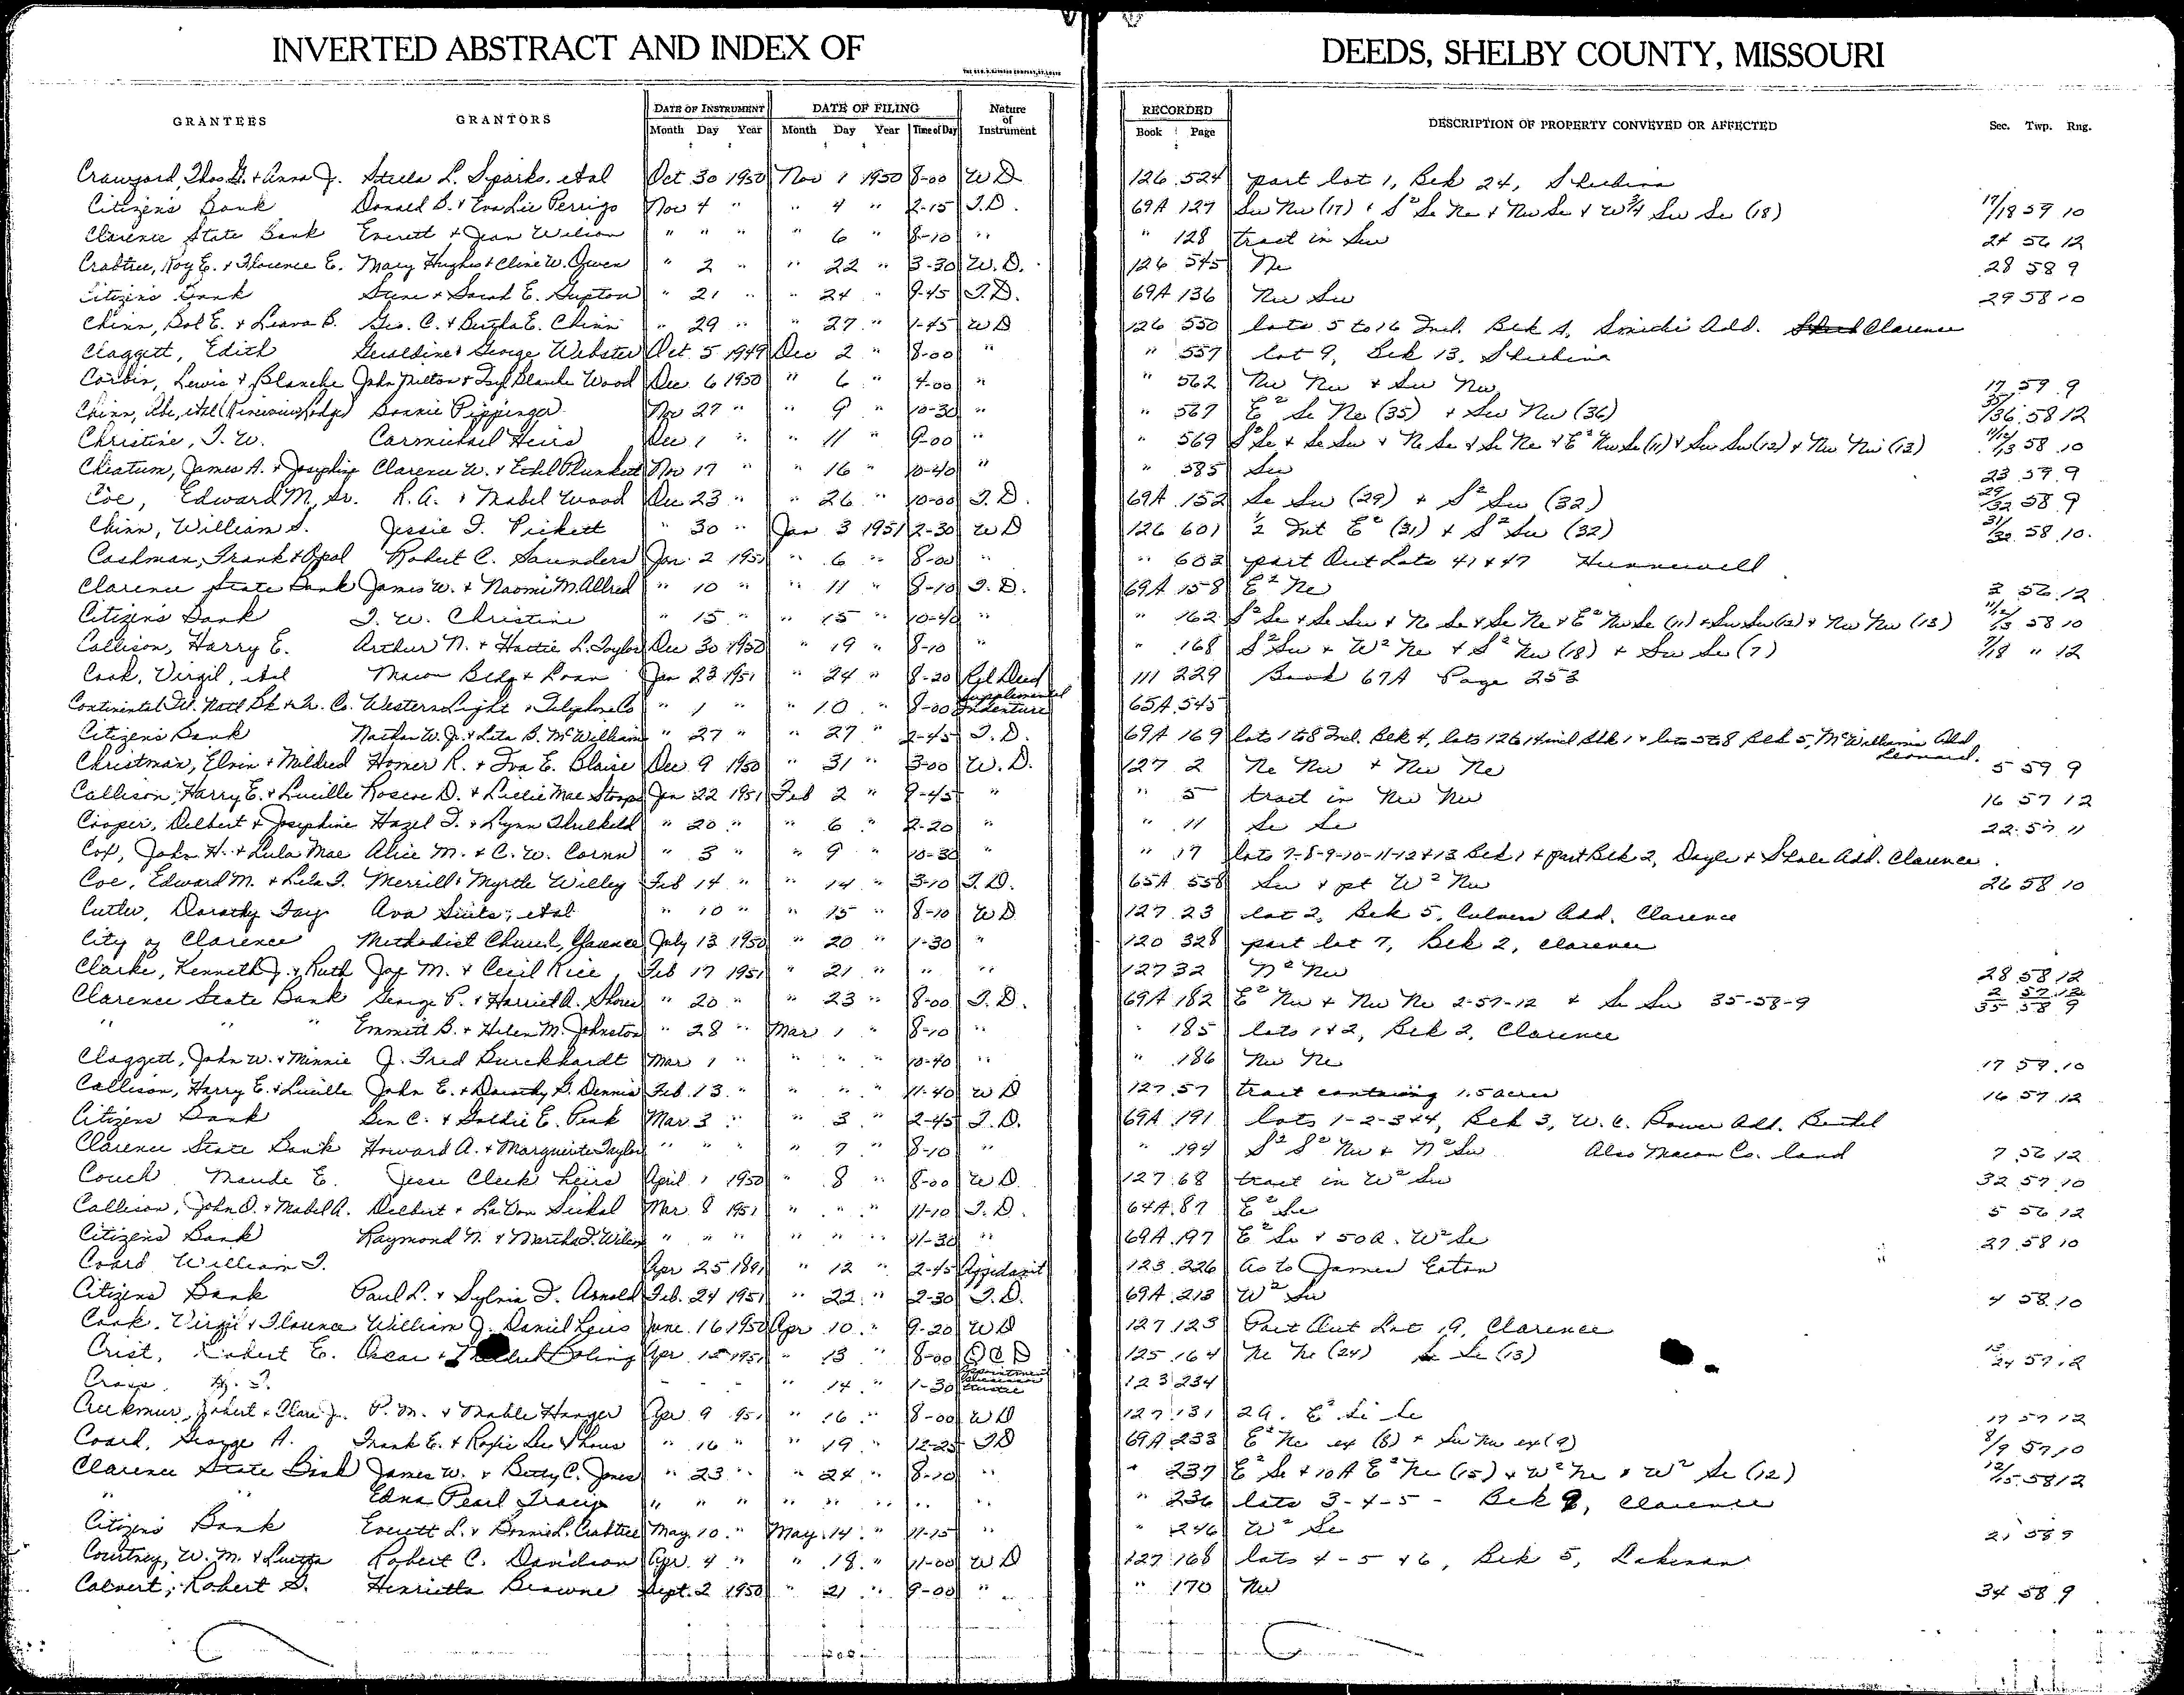 INVERTED ABSTRACT AND INDEX OF DEEDS, SHELBY COUNTY, MISSOURI
GRANTEES GRANTORS DATE OF INSTRUMENT DATE OF FILING Nature of Instrument RECORDED DESCRIPTION OF PROPERTY CONVEYED OR AFFECTED Sec. Twp. Rng.
Month Day Year Month Day Year Time of Day Book Page
Crawford, Thos G. + Anna J. Stella L. Sparks, etal Oct 30 1950 Nov 1 1950 8-00 WD 126 524 part lot 1, Blk 24, Shelbina
Citizens Bank Donald B. + Eva Lee Perrigo Nov 4 " " 4 " 2-15 T.D. 69A 127 Sw Nw (17) + S² Se Ne + Nw Se + W¾ Sw Se (18) 17/18 59 10
Clarence State Bank Everett + Jean Wilson " " " " 6 " 8-10 " " 128 tract in Sw 24 56 12
Crabtree, Roy E. + Florence E. Mary Hughes + Cline W. Owen " 2 " " 22 " 3-30 W.D. 126 545 Ne 28 58 9
Citizens Bank Steve + Sarah E. Gupton " 21 " " 24 " 9-45 T.D. 69A 136 Nw Sw 29 58 10
Chinn, Bob E. + Leava B. Geo. C. + Bertha E. Chinn " 29 " " 27 " 1-45 WD 126 550 lots 5 to 16 Incl. Blk 1, Add. Clarence
Claggett, Edith Geraldine + George Webster Oct 5 1949 Dec 2 " 8-00 " " 557 lot 9, Blk 13, Shelbina
Corbin, Lewis + Blanche John Milton + Blanche Wood Dec 6 1950 " 6 " 4-00 " " 562 Nw Nw + Sw Nw 17 59 9
Chinn, Abe, etal Bonnie Pippinger Nov 27 " " 9 " 10-30 " " 567 E² Se Ne (35) + Sw Nw (36) 35/36 58 12
Christine, T. W. Carmichael Heirs Dec 1 " " 11 " 9-00 " " 569 S² Se + Se Sw + Ne Se + Se Ne + E² Nw Se (11) + Sw Sw (12) + Nw Nw (13) 11/12/13 58 10
Cheatum, James A. + Josephine Clarence W. + Ethel Plunkett Nov 17 " " 16 " 10-40 " " 585 Sw 23 59 9
Coe, Edward M., Sr. R. A. + Mabel Wood Dec 23 " " 26 " 10-00 T.D. 69A 152 Se Sw (29) + S² Sw (32) 29/32 58 9
Chinn, William S. Jessie T. Pickett " 30 " Jan 3 1951 2-30 WD 126 601 ½ Int E² (31) + S² Sw (32) 31/32 58 10
Cashman, Frank + Opal Robert C. Saunders Jan 2 1951 " 6 " 8-00 " " 603 part Out Lots 41 + 47 Hunnewell
Clarence State Bank James W. + Naomi M. Allred " 10 " " 11 " 8-10 T.D. 69A 158 E² Ne 3 56 12
Citizens Bank T. W. Christine " 15 " " 15 " 10-40 " " 162 S² Se + Se Sw + Ne Se + Se Ne + E² Nw Se (11) + Sw Sw (12) + Nw Nw (13) 11/12/13 58 10
Callison, Harry E. Arthur N. + Hattie L. Taylor Dec 30 1950 " 19 " 8-10 " " 168 S² Sw + W² Ne + S² Nw (18) + Sw Se (7) 7/18 " 12
Cook, Virgil, etal Macon Bldg + Loan Jan 23 1951 " 24 " 8-20 Rel Deed 111 229 Book 67A Page 253
Continental Ill. Natl Bk + Tr. Co. Western Light + Telephone Co " 1 " " 10 " 8-00 Supplemental Indenture 65A 545
Citizens Bank Nathan W. Jr. + Leta B. McWilliams " 27 " " 27 " 2-45 T.D. 69A 169 lots 1 to 8 Incl. Blk 4, lots 12 to 14 incl Blk 1 + lots 5 to 8 Blk 5, McWilliams Add Leonard.
Christman, Elvin + Mildred Homer R. + Iva E. Blaise Dec 9 1950 " 31 " 3-00 W.D. 127 2 Ne Nw + Nw Ne 5 59 9
Callison, Harry E. + Lucille Roscoe D. + Lillie Mae Stoops Jan 22 1951 Feb 2 " 9-45 " " 5 tract in Nw Nw 16 57 12
Cooper, Delbert + Josephine Hazel T. + Lynn Threlkeld " 20 " " 6 " 2-20 " " 11 Se Se 22 57 11
Cox, John H. + Lula Mae Alice M. + C. W. Cornn " 3 " " 9 " 10-30 " " 17 lots 7-8-9-10-11-12+13 Blk 1 + part Blk 2, Dayle + Shale Add. Clarence
Coe, Edward M. + Lela T. Merrill + Myrtle Willey Feb 14 " " 14 " 3-10 T.D. 65A 558 Sw + pt W² Nw 26 58 10
Cutler, Dorothy Fay Ava, etal " 10 " " 15 " 8-10 WD 127 23 lot 2, Blk 5, Culvers Add. Clarence
City of Clarence Methodist Church, Clarence July 13 1950 " 20 " 1-30 " 120 328 part lot 7, Blk 2, Clarence
Clarke, Kenneth J. + Ruth Jay M. + Cecil Rice Feb 17 1951 " 21 " " " 127 32 N² Nw 28 58 12
Clarence State Bank George P. + Harriet A. Shores " 20 " " 23 " 8-00 T.D. 69A 182 E² Nw + Nw Ne 2-57-12 + Se Sw 35-58-9 2 57 12 35 58 9
" " " Emmett B. + Helen M. Johnston " 28 " Mar 1 " 8-10 " " 185 lots 1+2, Blk 2, Clarence
Claggett, John W. + Minnie J. Fred Burckhardt Mar 1 " " " " 10-40 " " 186 Nw Ne 17 59 10
Callison, Harry E. + Lucille John E. + Dorothy G. Dennis Feb. 13 " " " " 11-40 WD 127 57 tract containing 1.5 acres 16 57 12
Citizens Bank Ben C. + Goldie E. Peak Mar 3 " " 3 " 2-45 T.D. 69A 191 lots 1-2-3+4, Blk 3, W. C. Bower Add. Bethel
Clarence State Bank Howard A. + Marguerite Taylor " " " " 7 " 8-10 " " 194 S² S² Nw + N² Sw Also Macon Co. land 7 56 12
Couch Maude E. Jesse Cleek heirs April 1 1950 " 8 " 8-00 WD 127 68 tract in W² Sw 32 57 10
Callison, John D. + Mabel A. Delbert + LaVon Sickal Mar 8 1951 " " " 11-10 T.D. 64A 87 E² Se 5 56 12
Citizens Bank Raymond N. + Martha F. Wilson " " " " " " 11-30 " 69A 197 E² Se + 50A. W² Se 27 58 10
Coard William T. Apr 25 1891 " 12 " 2-45 Affidavit 123 226 as to James Eaton
Citizens Bank Paul L. + Sylvia T. Arnold Feb. 24 1951 " 22 " 2-30 T.D. 69A 213 W² Sw 4 58 10
Cook, Virgil + Florence William J. Daniel heirs June 16 1950 Apr 10 " 9-20 WD 127 123 Part Out Lot 19, Clarence
Crist, Robert E. Oscar + Boling Apr 12 1951 " 13 " 8-00 QCD 125 164 Ne Ne (24) Se Se (13) 13/24 57 12
Cross - - - " 14 " 1-30 Appointment Successor Trustee 123 234
Creekmur, Robert + Clare J. P. M. + Mable Hanger Apr 9 1951 " 16 " 8-00 WD 127 131 2A. E² Se Se 17 57 12
Coard, George A. Frank E. + Roxie Lee Shous " 16 " " 19 " 12-25 TD 69A 233 E² Ne ex (8) + Sw Nw ex (9) 8/9 57 10
Clarence State Bank James W. + Betty C. Jones " 23 " " 24 " 8-10 " " 237 E² Se + 10A E² Ne (15) + W² Ne + W² Se (12) 12/15 58 12
" " Edna Pearl Tracy " " " " " " " " " 236 lots 3-4-5 - Blk 9, Clarence
Citizens Bank Everett L. + Bonnie L. Crabtree May 10 " May 14 " 11-15 " " 246 W² Se 21 58 9
Courtney, W. M. + Luetta Robert C. Davidson Apr. 4 " " 18 " 11-00 WD 127 168 lots 4-5+6, Blk 5, Lakenan
Calvert, Robert S. Henrietta Browne Sept. 2 1950 " 21 " 9-00 " " 170 Nw 34 58 9